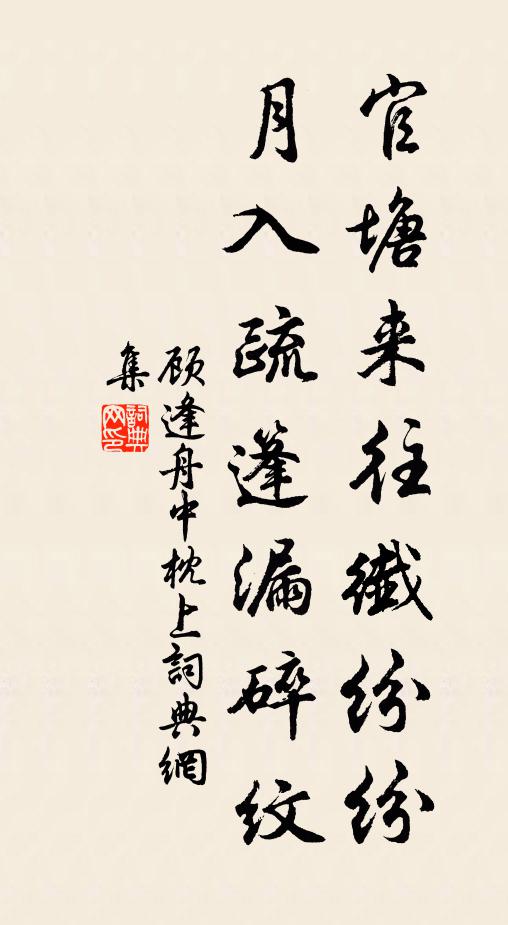 官塘来往纖纷纷
月入疏篷漏碎纹
顾逢舟中枕上詞典網
集
詞典网印